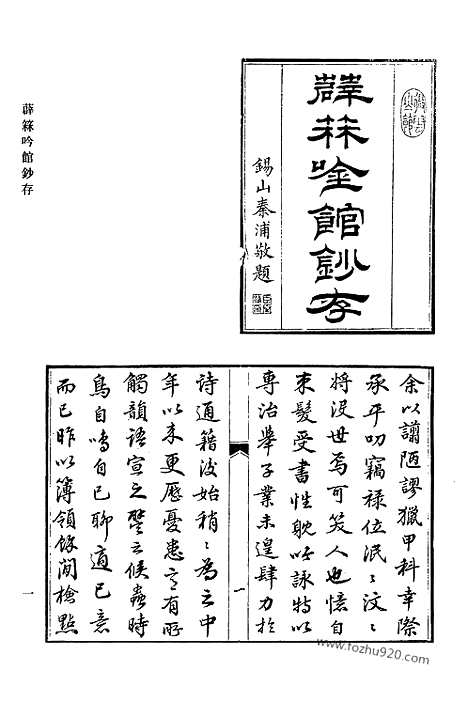 薜箖吟館鈔存
錫山秦浦敬題
薜箖吟館鈔存
余以謭陋謬獵甲科幸際
承平叨竊祿位泯〻汶〻
將沒世焉可笑人也憶自
束髮受書性耽吟詠特以
專治舉子業未遑肆力於
詩通籍後始稍〻為之中
年以來更歷憂患意有所
觸韻語宣之譬之候蟲時
鳥自鳴自已聊適己意
而已昨以簿領餘閒檢點
一
一
www.fozhu920.com